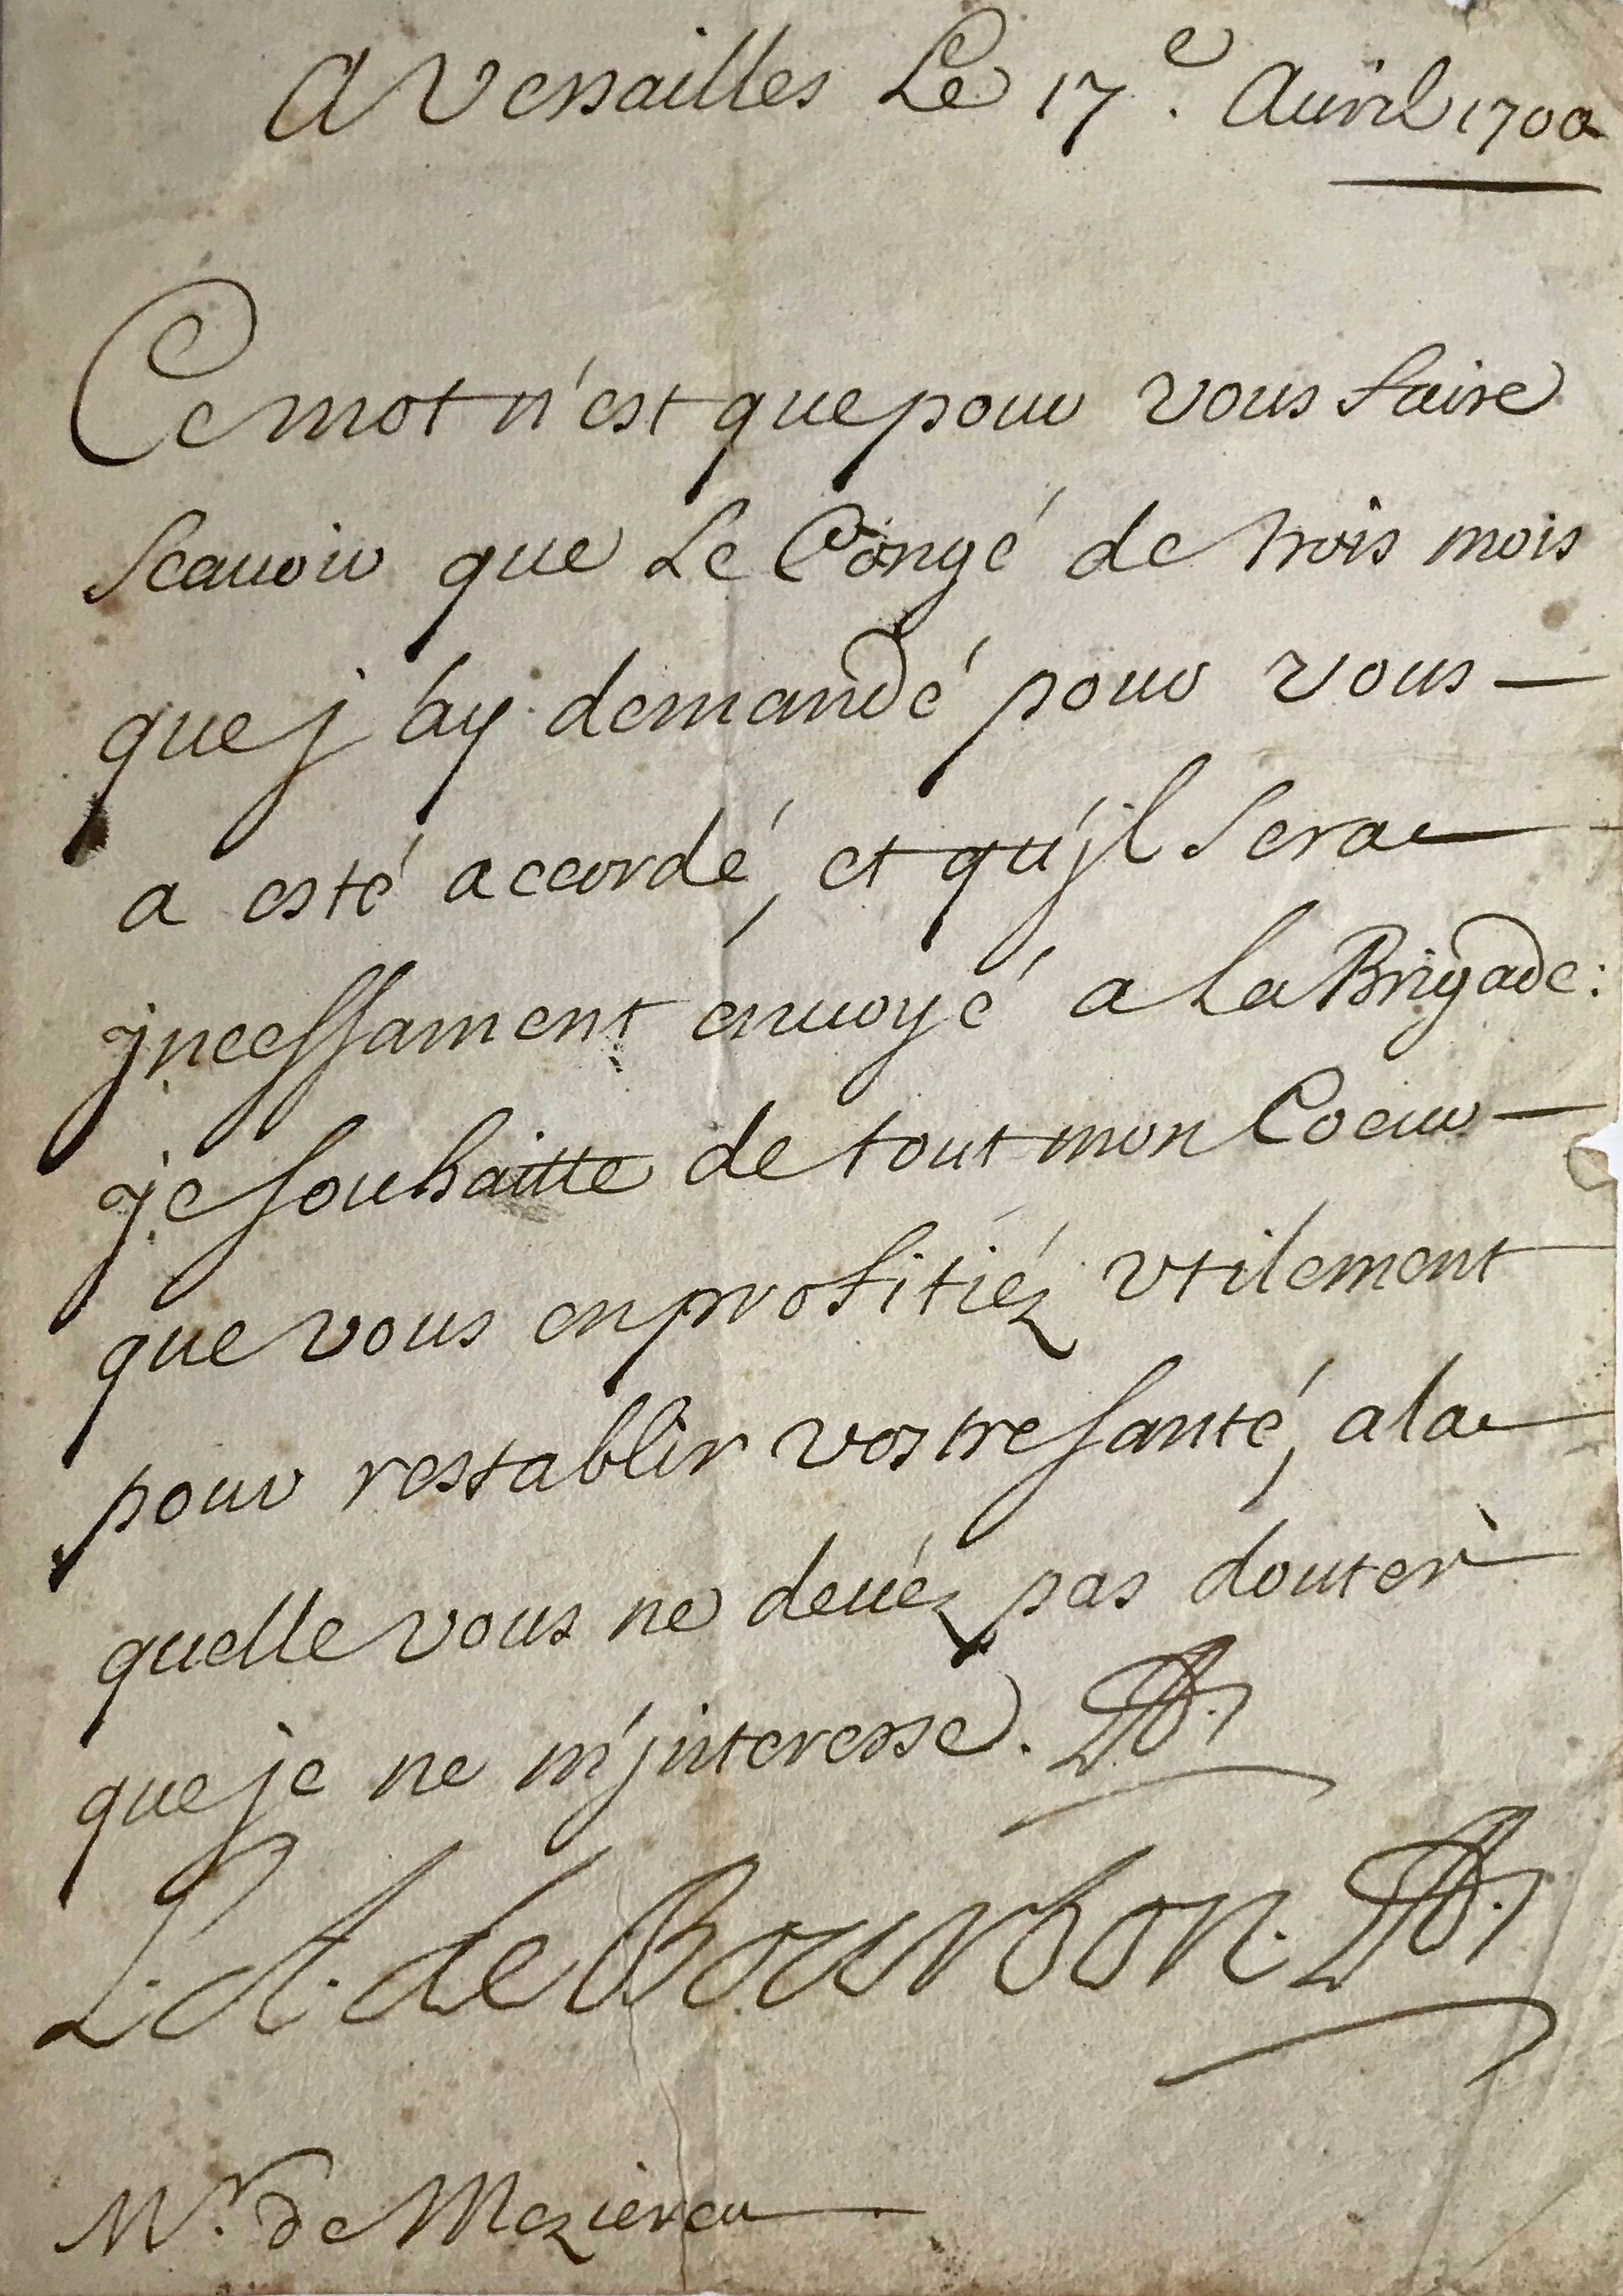 A Versailles Le 17e. Auril 1700
Ce mot n'est que pour vous faire
Scauoir que Le Congé de trois mois
que j'ay demandé pour vous
a esté accordé, et qu'jl Sera
jncessament enuoyé a La Brigade:
je souhaitte de tout mon Coeur
que vous en profitiéz vtilement
pour restablir vostre santé, a la
quelle vous ne deuéz pas douter
que je ne m'jnteresse.
L. A. de Bourbon.
Mr. de Mezieres